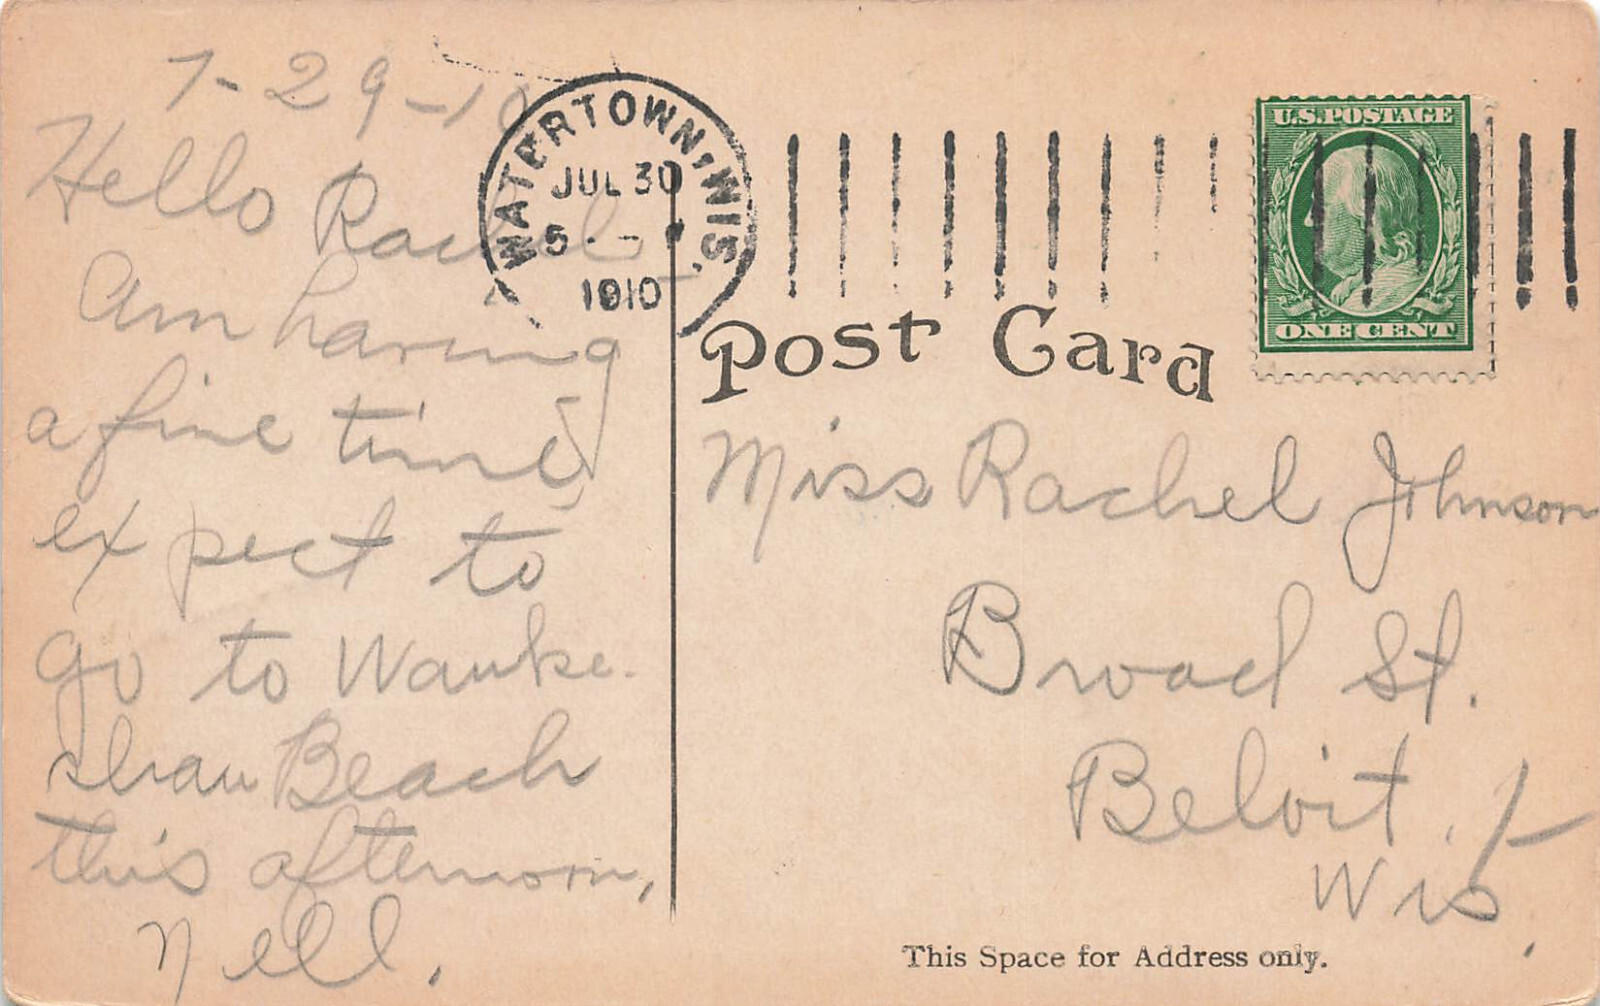 7-29-10
Hello Rachel
Am having
a fine time,
expect to
go to Wauke-
shau Beach
this afternoon,
Nell.
WATERTOWN, WIS.
JUL 30
5 -
1910
U.S. POSTAGE
ONE CENT
Post Card
Miss Rachel Johnson
Broad St.
Beloit,
Wis.
This Space for Address only.